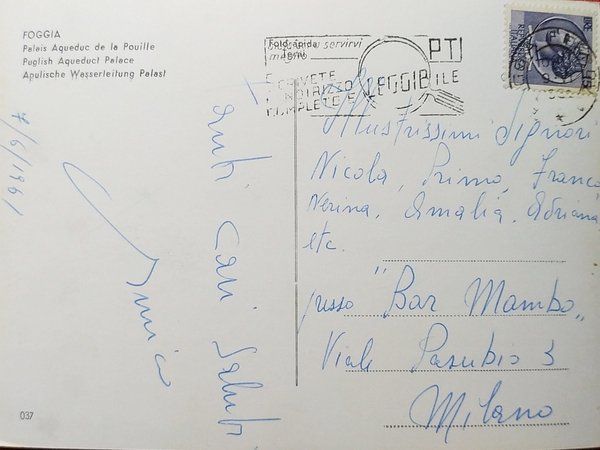 FOGGIA
Palais Aqueduc de la Pouille
Puglish Aqueduct Palace
Apulische Wasserleitung Palast
7/6/1961
Tanti Cari Saluti
037
servirvi
meglio
PTI
SCRIVETE
INDIRIZZO
COMPLETO E LEGGIBILE
Illustrissimi Signori
Nicola, Primo, Franco,
Nerina, Amalia, Adriana
etc.
presso "Bar Mambo"
Viale Pasubio 3
Milano